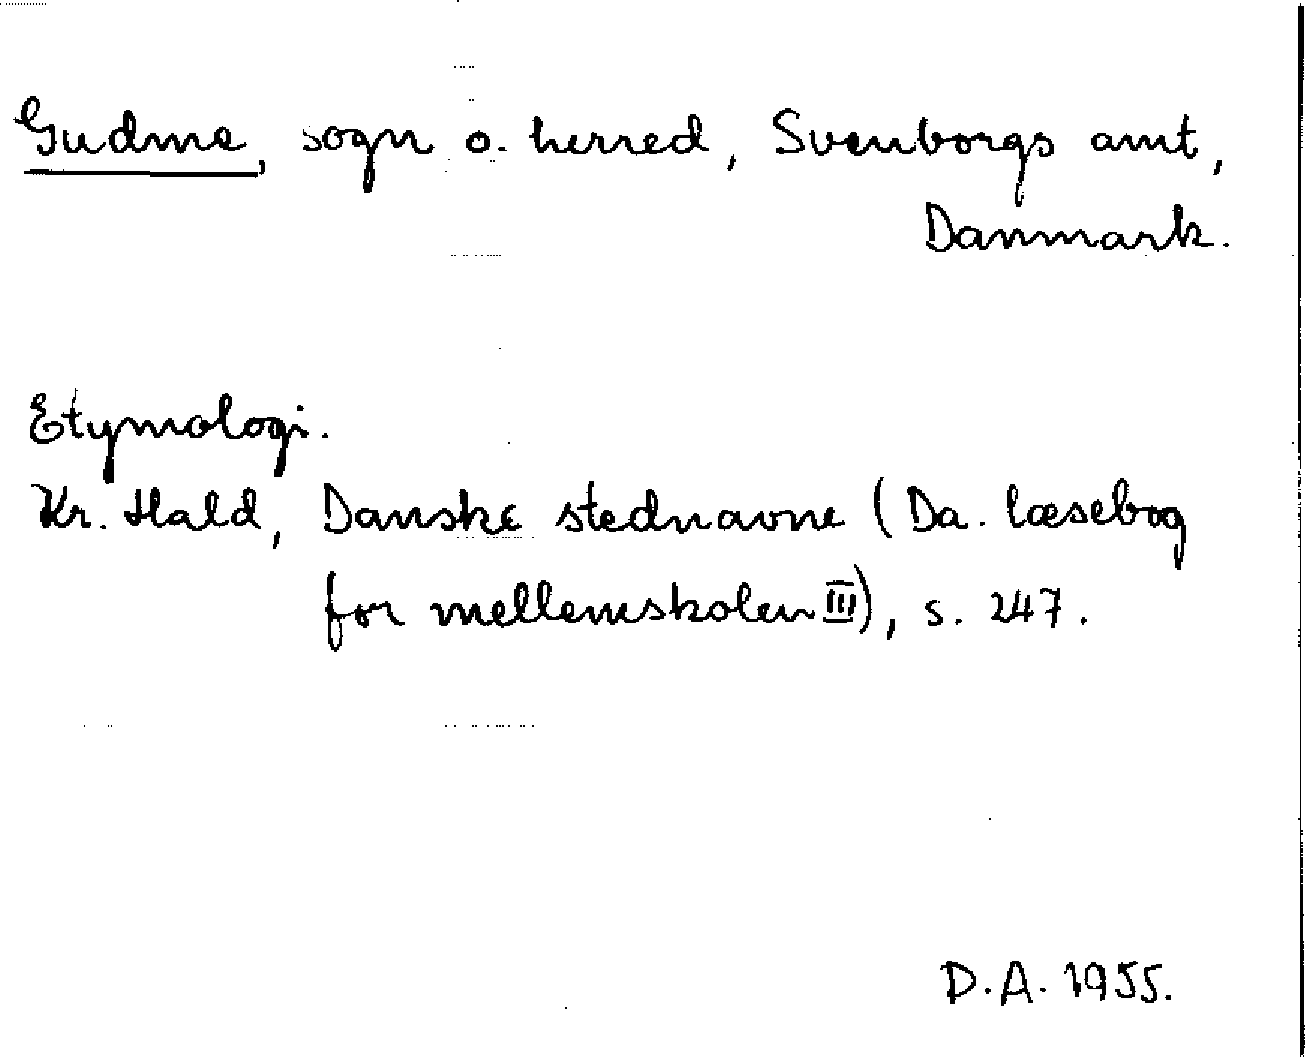 Gudme, sogn o. herred, Svenborgs amt,
Danmark.
Etymologi.
Kr. Hald, Danske stednavne (Da. læsebog
for mellemskolen III), s. 247.
D.A. 1955.